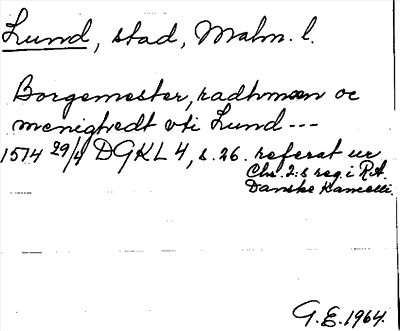 Lund, stad, Malm. l.
Borgemester, radhmæn oc
menighedt vti Lund ---
1514 29/4 DGKL 4, s. 26. referat ur
Chr. 2:s reg. i R.A.
Danske Kancelli.
G.E. 1964.